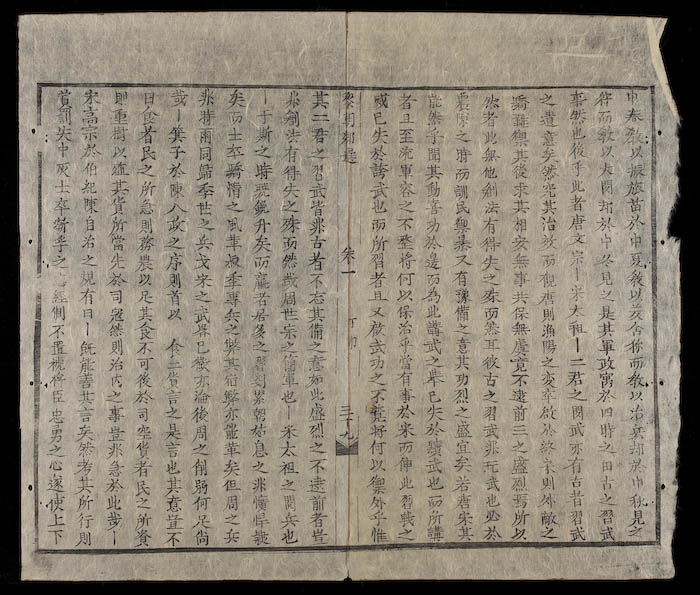 中春教以振旅苗於中夏教以茇舍狝而教以治兵却於中秋見之
狩而教以大閱却於中冬見之是其軍政寓於四時之田古之習武
事然也後乎此者唐文宗一宋太祖一二君之閱武亦有古者習武
之遺意矣然究其治效而觀唐則漁陽之变卒啟於終宋則外敵之
驕難禦其後求其相安無事共保無虞竟不逮前三之盛烈焉所以
然者此無他創法有得失之殊而然耳彼古之習武非玩武也必於
農隙之時而調民與又有豫備之意其功烈之盛宜矣若唐宋其
能然乎聞其動喜功於邊而為此講武之舉已失於黷武也而所講
者且至流軍容之不整將何以保治乎當有事於宋而俾此習戰之
或已失於誇武也而所習者且又啟武功之不竟將何以禦外乎惟
黎朝 選 卷一 三十九
其二君之習武皆非古者不忘其備之意如此盛烈之不逮前者豈
非創法有得失之殊而然哉周世宋之簡軍也一宋太祖之閱兵也
一于斯之時驍銳升矣而羸者居多之習刻累朝姑息之非悍
矣而士卒驕惰之風革叔季專兵之弊其宿弊亦能革矣但周之兵
非時雨同歸季世之兵戈宋之武畧已衰亦淪後周之削弱何足尚
哉一箕子於陳八政之序則首以一食二貨言之是言也其意豈不
曰食者民之所急則務農以足其食不可後於司空貨者民之所資
則重樹以殖其貨所當先於司寇然則治内之事豈非急於此哉一
宋高宗於伯紀陳自治之規有曰一既能善其言矣然考其所行則
賞罰失中灰士卒新乎之經制不置襪將臣忠勇之心遂使上下